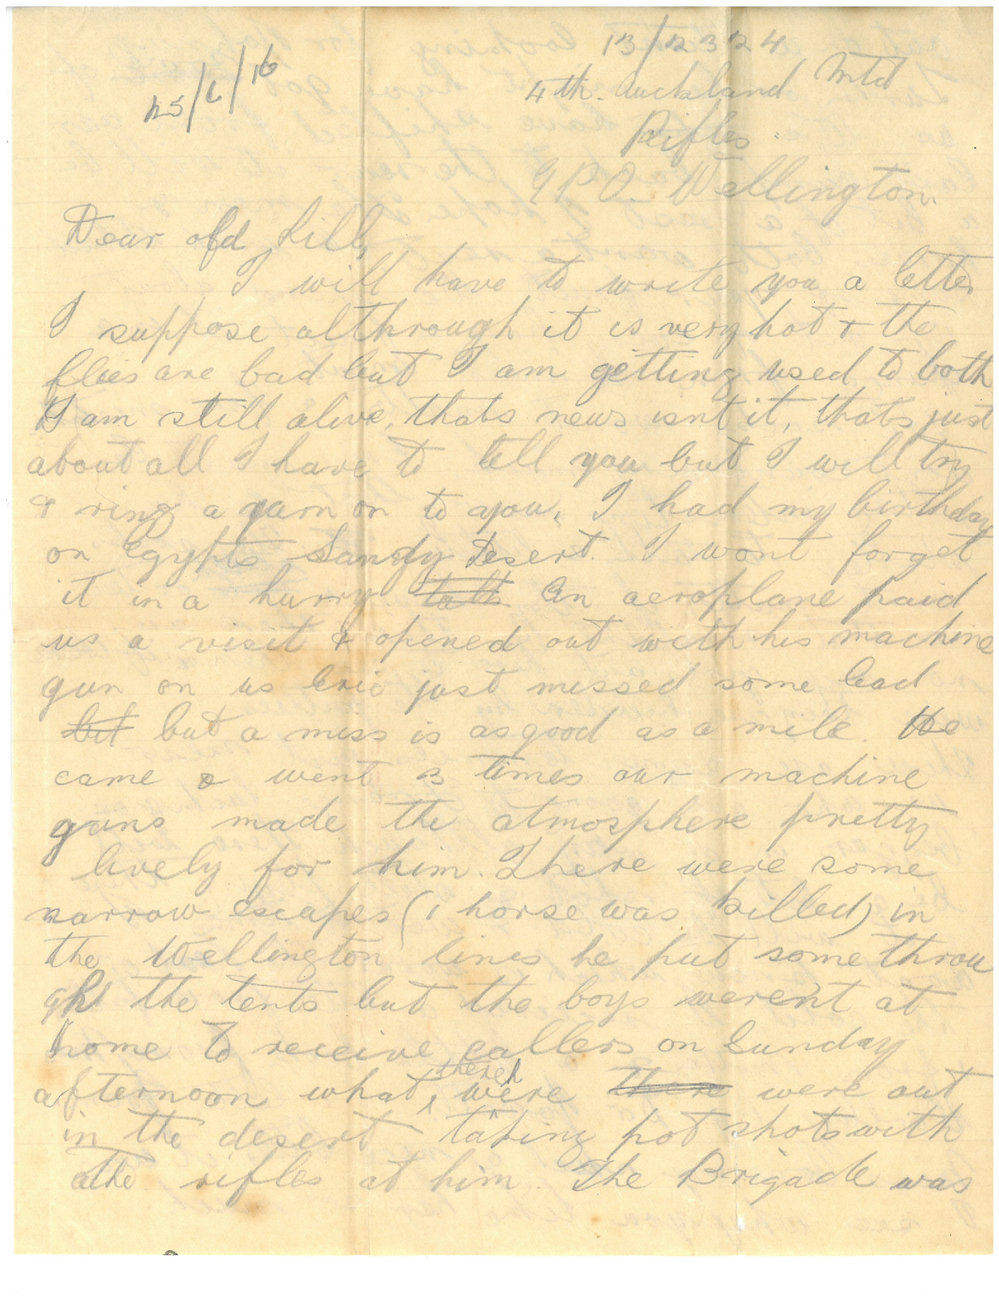 13/2324
25/6/16
4th. Auckland Mtd
Rifles.
G P O. Wellington.
Dear old Lill,
I will have to write you a letter
I suppose althrough it is very hot & the
flies are bad but I am getting used to both
I am still alive, thats news isnt it, thats just
about all I have to tell you but I will try
& ring a yarn on to you. I had my birthday
on Egypts Sandy Desert. I wont forget
it in a hurry. An aeroplane paid
us a visit & opened out with his machine
gun on us Eric just missed some lead
but but a miss is as good as a mile. He
came & went 3 times our machine
guns made the atmosphere pretty
lively for him. There were some
narrow escapes (1 horse was killed) in
the Wellington lines he put some throu
gh the tents but the boys weren't at
home to receive callers on Sunday
afternoon what, there were were out
in the desert taking pot shots with
the rifles at him. The Brigade was